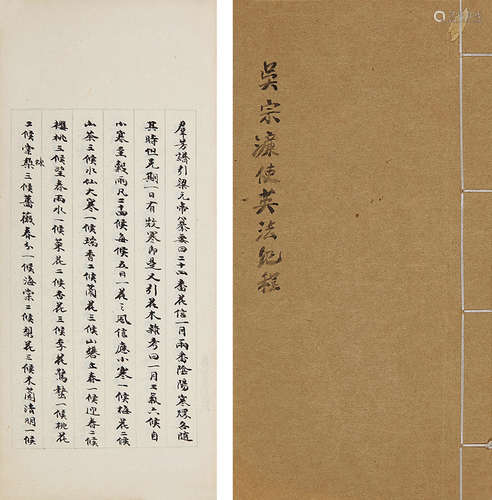 吳宗濂使英法紀程
群芳譜引梁元帝纂要曰二十四番花信一月兩番陰陽寒煖各隨
其時但先期一日有微寒即是又引花木雜考曰一月二氣六候自
小寒至穀雨凡二十四候每候五日一花之風信應小寒一候梅花二候
山茶三候水仙大寒一候瑞香二候蘭花三候山礬立春一候迎春二候
櫻桃三候望春雨水一候菜花二候杏花三候李花驚蟄一候桃花
二候棠棣三候薔薇春分一候海棠二候梨花三候木蘭清明一候